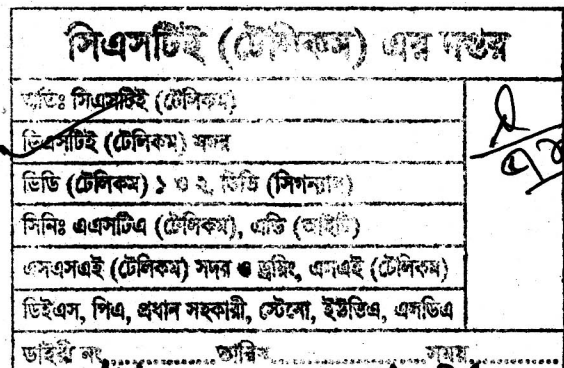 সিএসটিই (টেলিকম) এর দপ্তর
অতিঃ সিএসটিই (টেলিকম)
ডিএসটিই (টেলিকম) সদর
ডিডি (টেলিকম) ১ ও ২, ডিডি (সিগন্যাল)
সিনিঃ এএসটিএ (টেলিকম), এডি (আইটি)
এসএসএই (টেলিকম) সদর ও ড্রয়িং, এসএই (টেলিকম)
ডিইএস, পিএ, প্রধান সহকারী, স্টেনো, ইউডিএ, এলডিএ
ডাইরী নং.............তারিখ.....................সময়.............